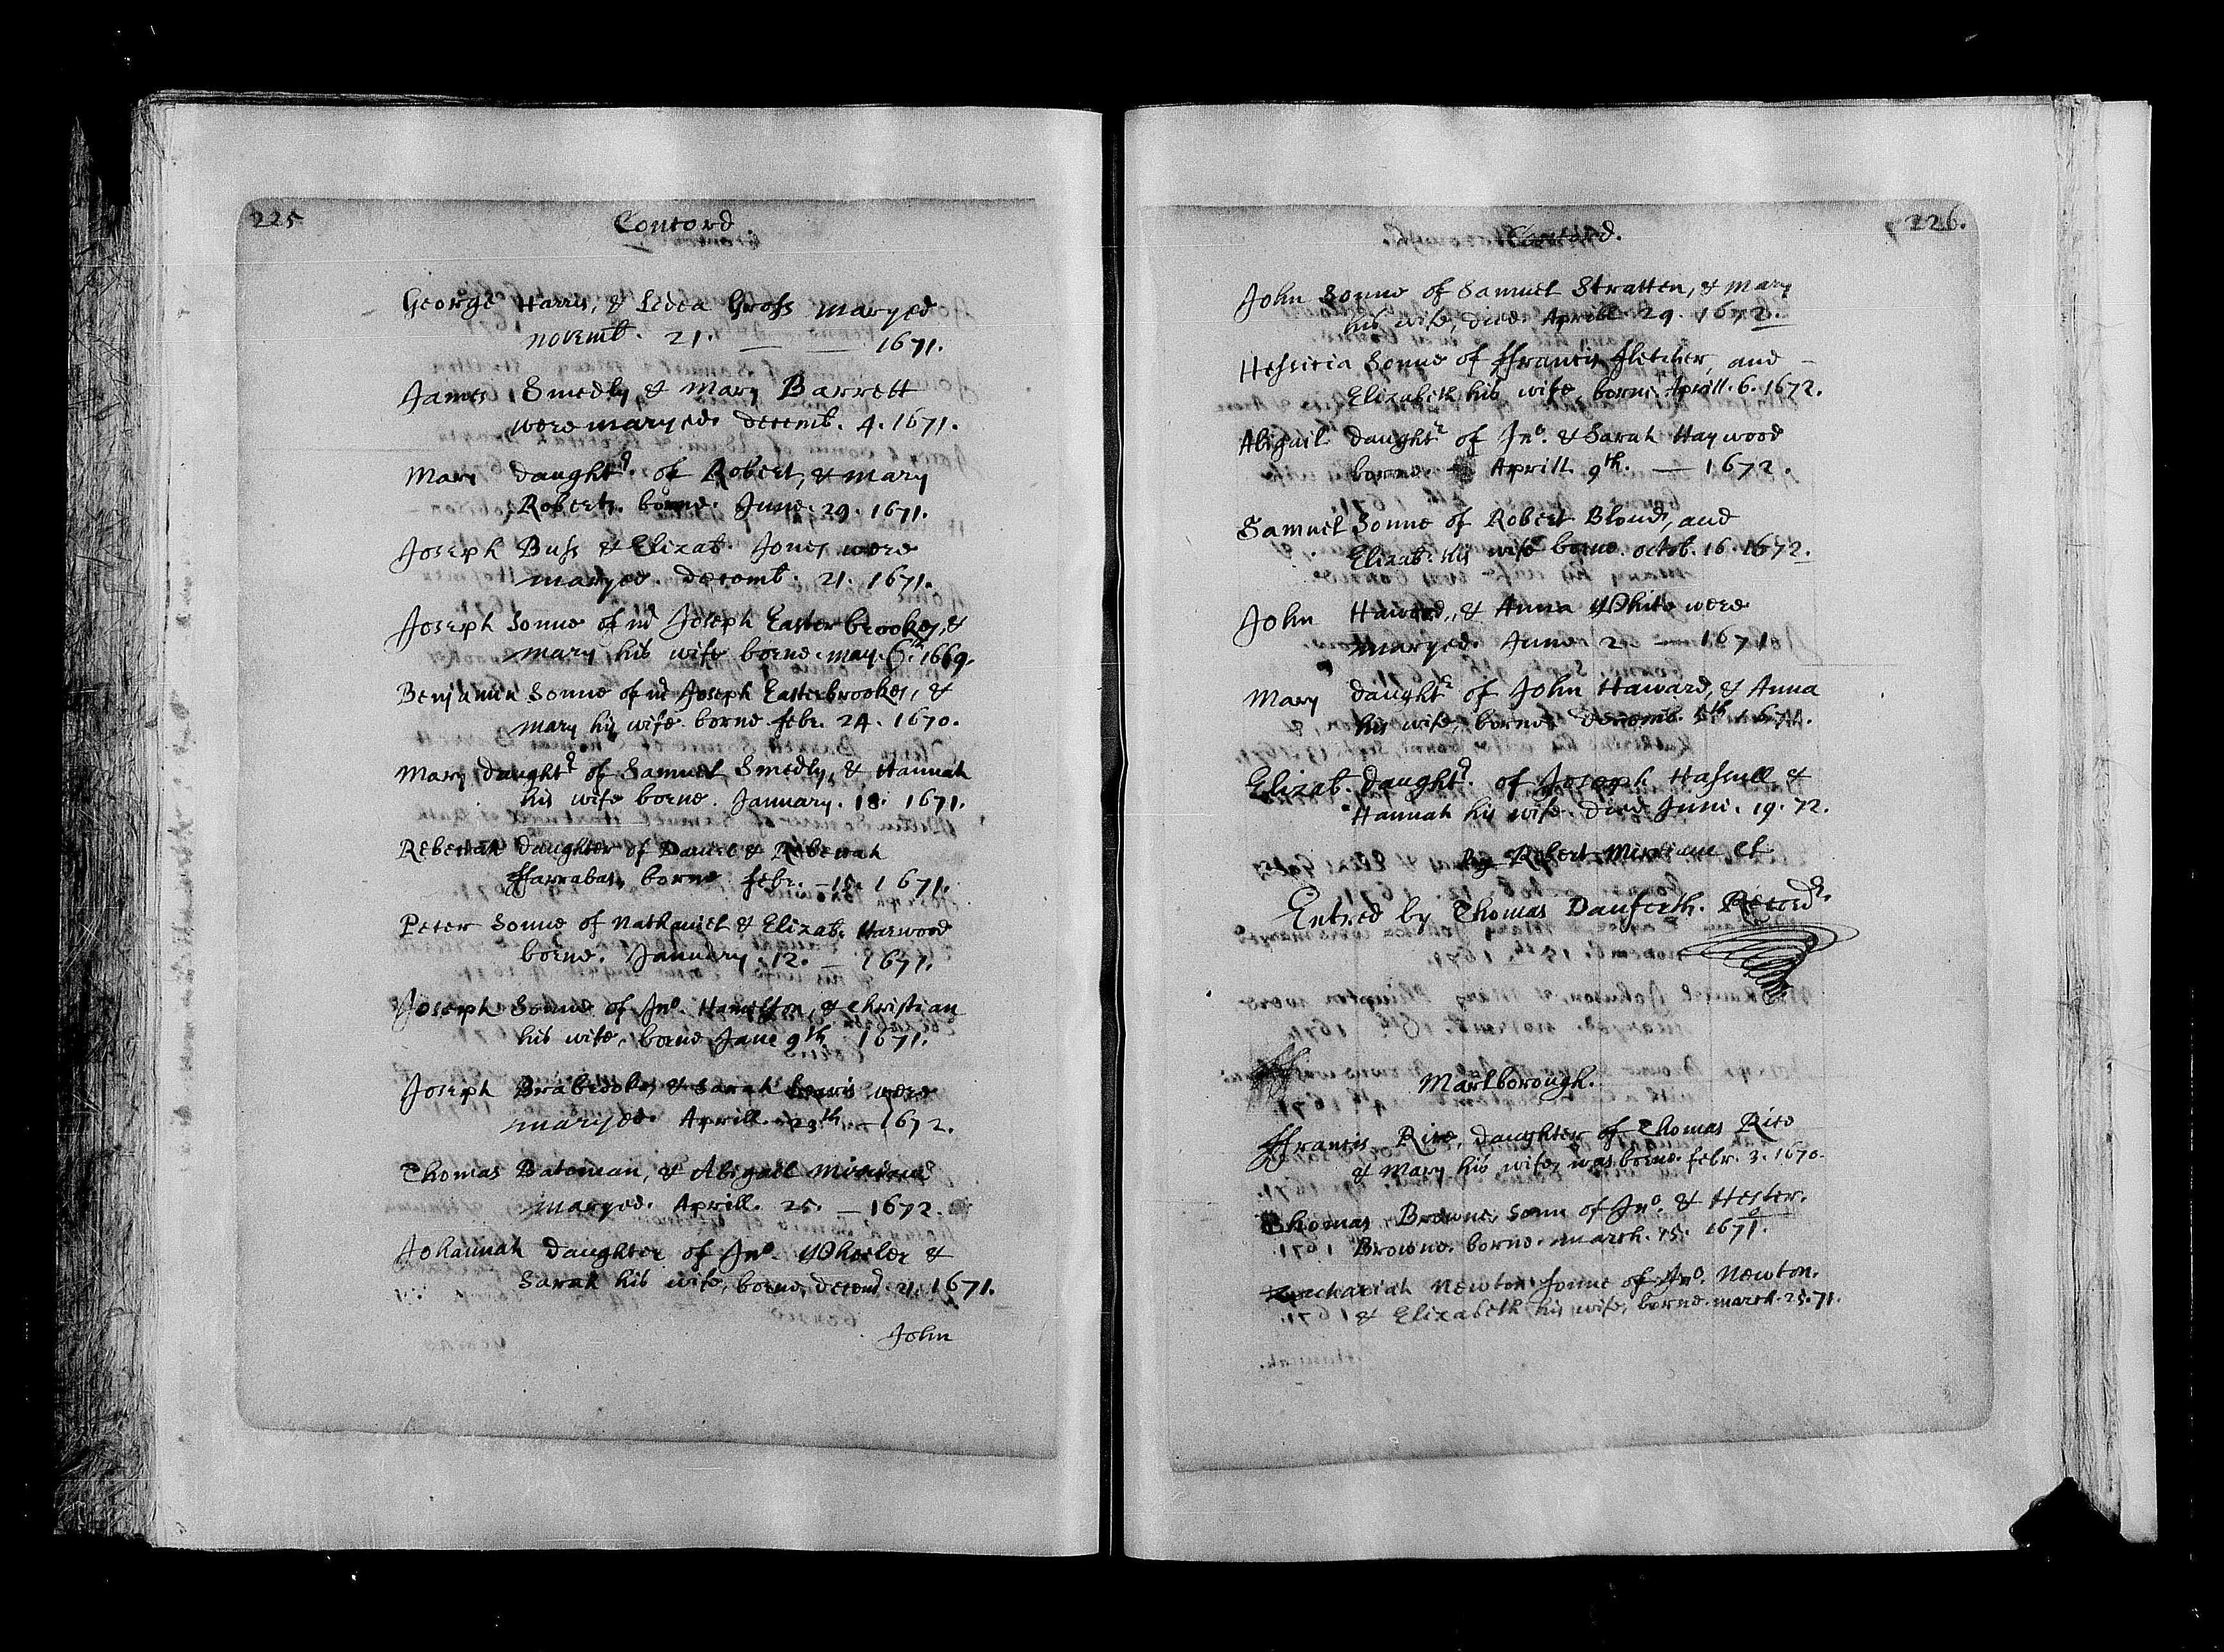 225
Concord.
George Harris, & Lidea Gross maryed
novemb. 21. — — 1671.
James Smedly & Mary Barrett
were maryed. decemb. 4. 1671.
Mary daughtr. of Robert, & mary
Roberts. borne. June. 29. 1671.
Joseph Buss & Elizab. Jones were
maryed. decemb. 21. 1671.
Joseph Sonne of Joseph Easterbrookes, &
mary his wife borne. may. 1669.
Benjamin Sonne of Joseph Easterbrookes, &
mary his wife borne febr. 24. 1670.
Mary daughtr of Samuel Smedly, & Hannah
his wife borne. January. 18. 1671.
Rebeckah daughter of Daniel & Rebecah
ffarrabas, borne febr. –15. 1671.
Peter Sonne of Nathaniel & Elizab. Harwood
borne. January. 12. — 1671.
Joseph Sonne of Jno. & Christian
his wife, borne June 9th. 1671.
Joseph Brabrooke, & Sarah Lewis were
maryed. Aprill. 23th — 1672.
Thomas Bateman, & Abigail Miriam
maryed. Aprill. 25. — 1672.
Johannah daughter of Jno. Wheeler &
Sarah his wife, borne, decemb 21. 1671.
John
226.
Concord.
John Sonne of Samuel Stratten, & mary
his wife, died Aprill. 29. 1672.
Hessicia Sonne of ffrancis fletcher, and –
Elizabeth his wife, borne Aprill. 6. 1672.
Abigail daughtr of Jno. & Sarah Haywood
borne. Aprill 9th. — 1672.
Samuel Sonne of Robert Blood, and
Elizab. his wife borne. octob. 16. 1672.
John Haward, & Anna White were
maryed. June 2. — 1671.
Mary daughtr of John Haward, & Anna
his wife, borne decemb. 1671.
Elizab. daughtr. of Joseph Hassull &
Hannah his wife. died June. 19. 72.
By Robert Miriam Cl
Entred by Thomas Danforth. Recordr.
Marlborough.
ffrancis Rice, daughter of Thomas Rice
& Mary his wife, was borne. febr. 3. 1670.
Thomas Browne, Sonn of Jno. & Hester.
Browne. borne. march. 15. 1671.
Zachariah Newton Sonne of Jno. Newton.
& Elizabeth his wife, borne. march. 25. 71.